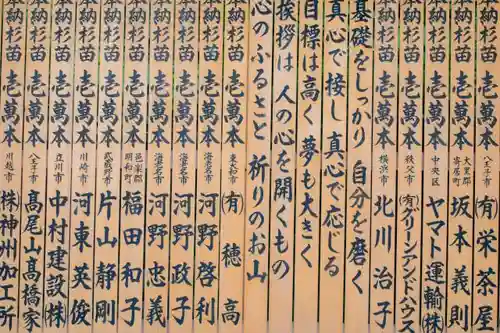 奉納杉苗 壱萬本 八王子市 (有)栄茶屋
奉納杉苗 壱萬本 大里郡寄居町 坂本義則
奉納杉苗 壱萬本 中央区 ヤマト運輸(株)
奉納杉苗 壱萬本 秩父市 (有)グリーンアンドハウス
奉納杉苗 壱萬本 横浜市 北川治子
基礎をしっかり 自分を磨く
真心で接し 真心で応じる
目標は高く 夢も大きく
挨拶は 人の心を開くもの
心のふるさと 祈りのお山
奉納杉苗 壱萬本 東大和市 (有)穂高
奉納杉苗 壱萬本 海老名市 河野啓利
奉納杉苗 壱萬本 海老名市 河野政子
奉納杉苗 壱萬本 海老名市 河野忠義
奉納杉苗 壱萬本 邑楽郡明和町 福田和子
奉納杉苗 壱萬本 武蔵野市 片山静剛
奉納杉苗 壱萬本 川崎市 河東英俊
奉納杉苗 壱萬本 立川市 中村建設(株)
奉納杉苗 壱萬本 八王子市 高尾山高橋家
奉納杉苗 壱萬本 川越市 (株)神州加工所